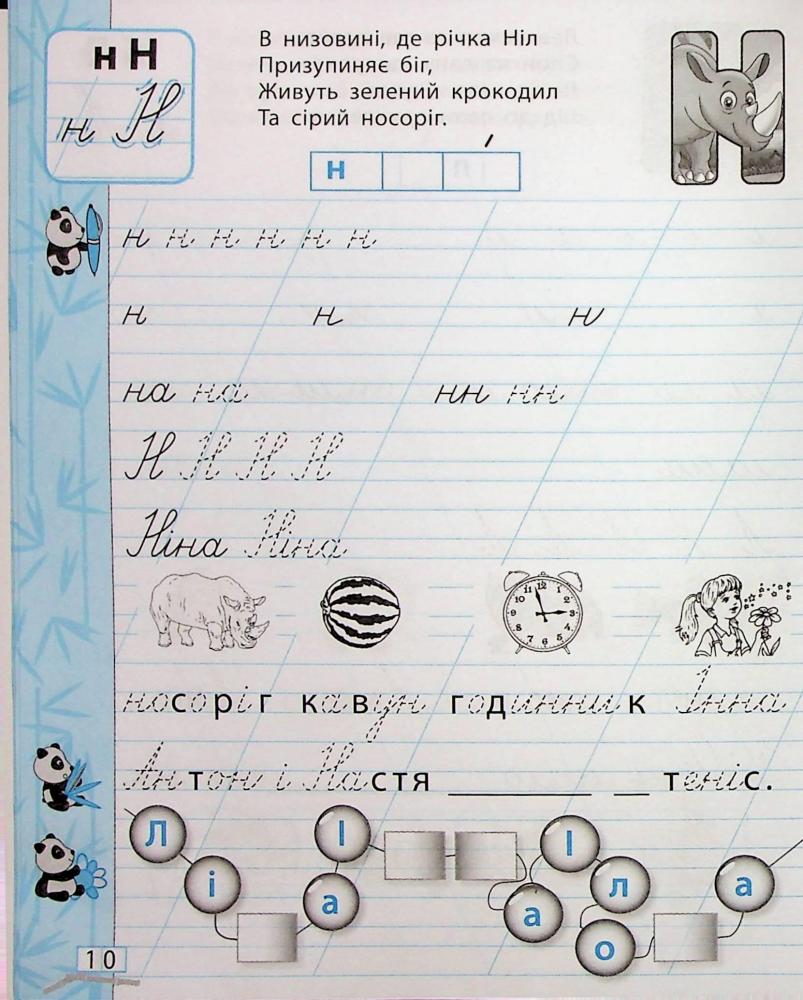 н Н
н Н
В низовині, де річка Ніл
Призупиняє біг,
Живуть зелений крокодил
Та сірий носоріг.
Н
н
н н н н н н
н н н
на на нн нн
Н Н Н Н
Ніна Ніна
12 1 2 3 4 5 6 7 8 9 10 11
носоріг кавун годинник Інна
Антон і Настя ________ __ теніс.
Л і а І а І л о а
10